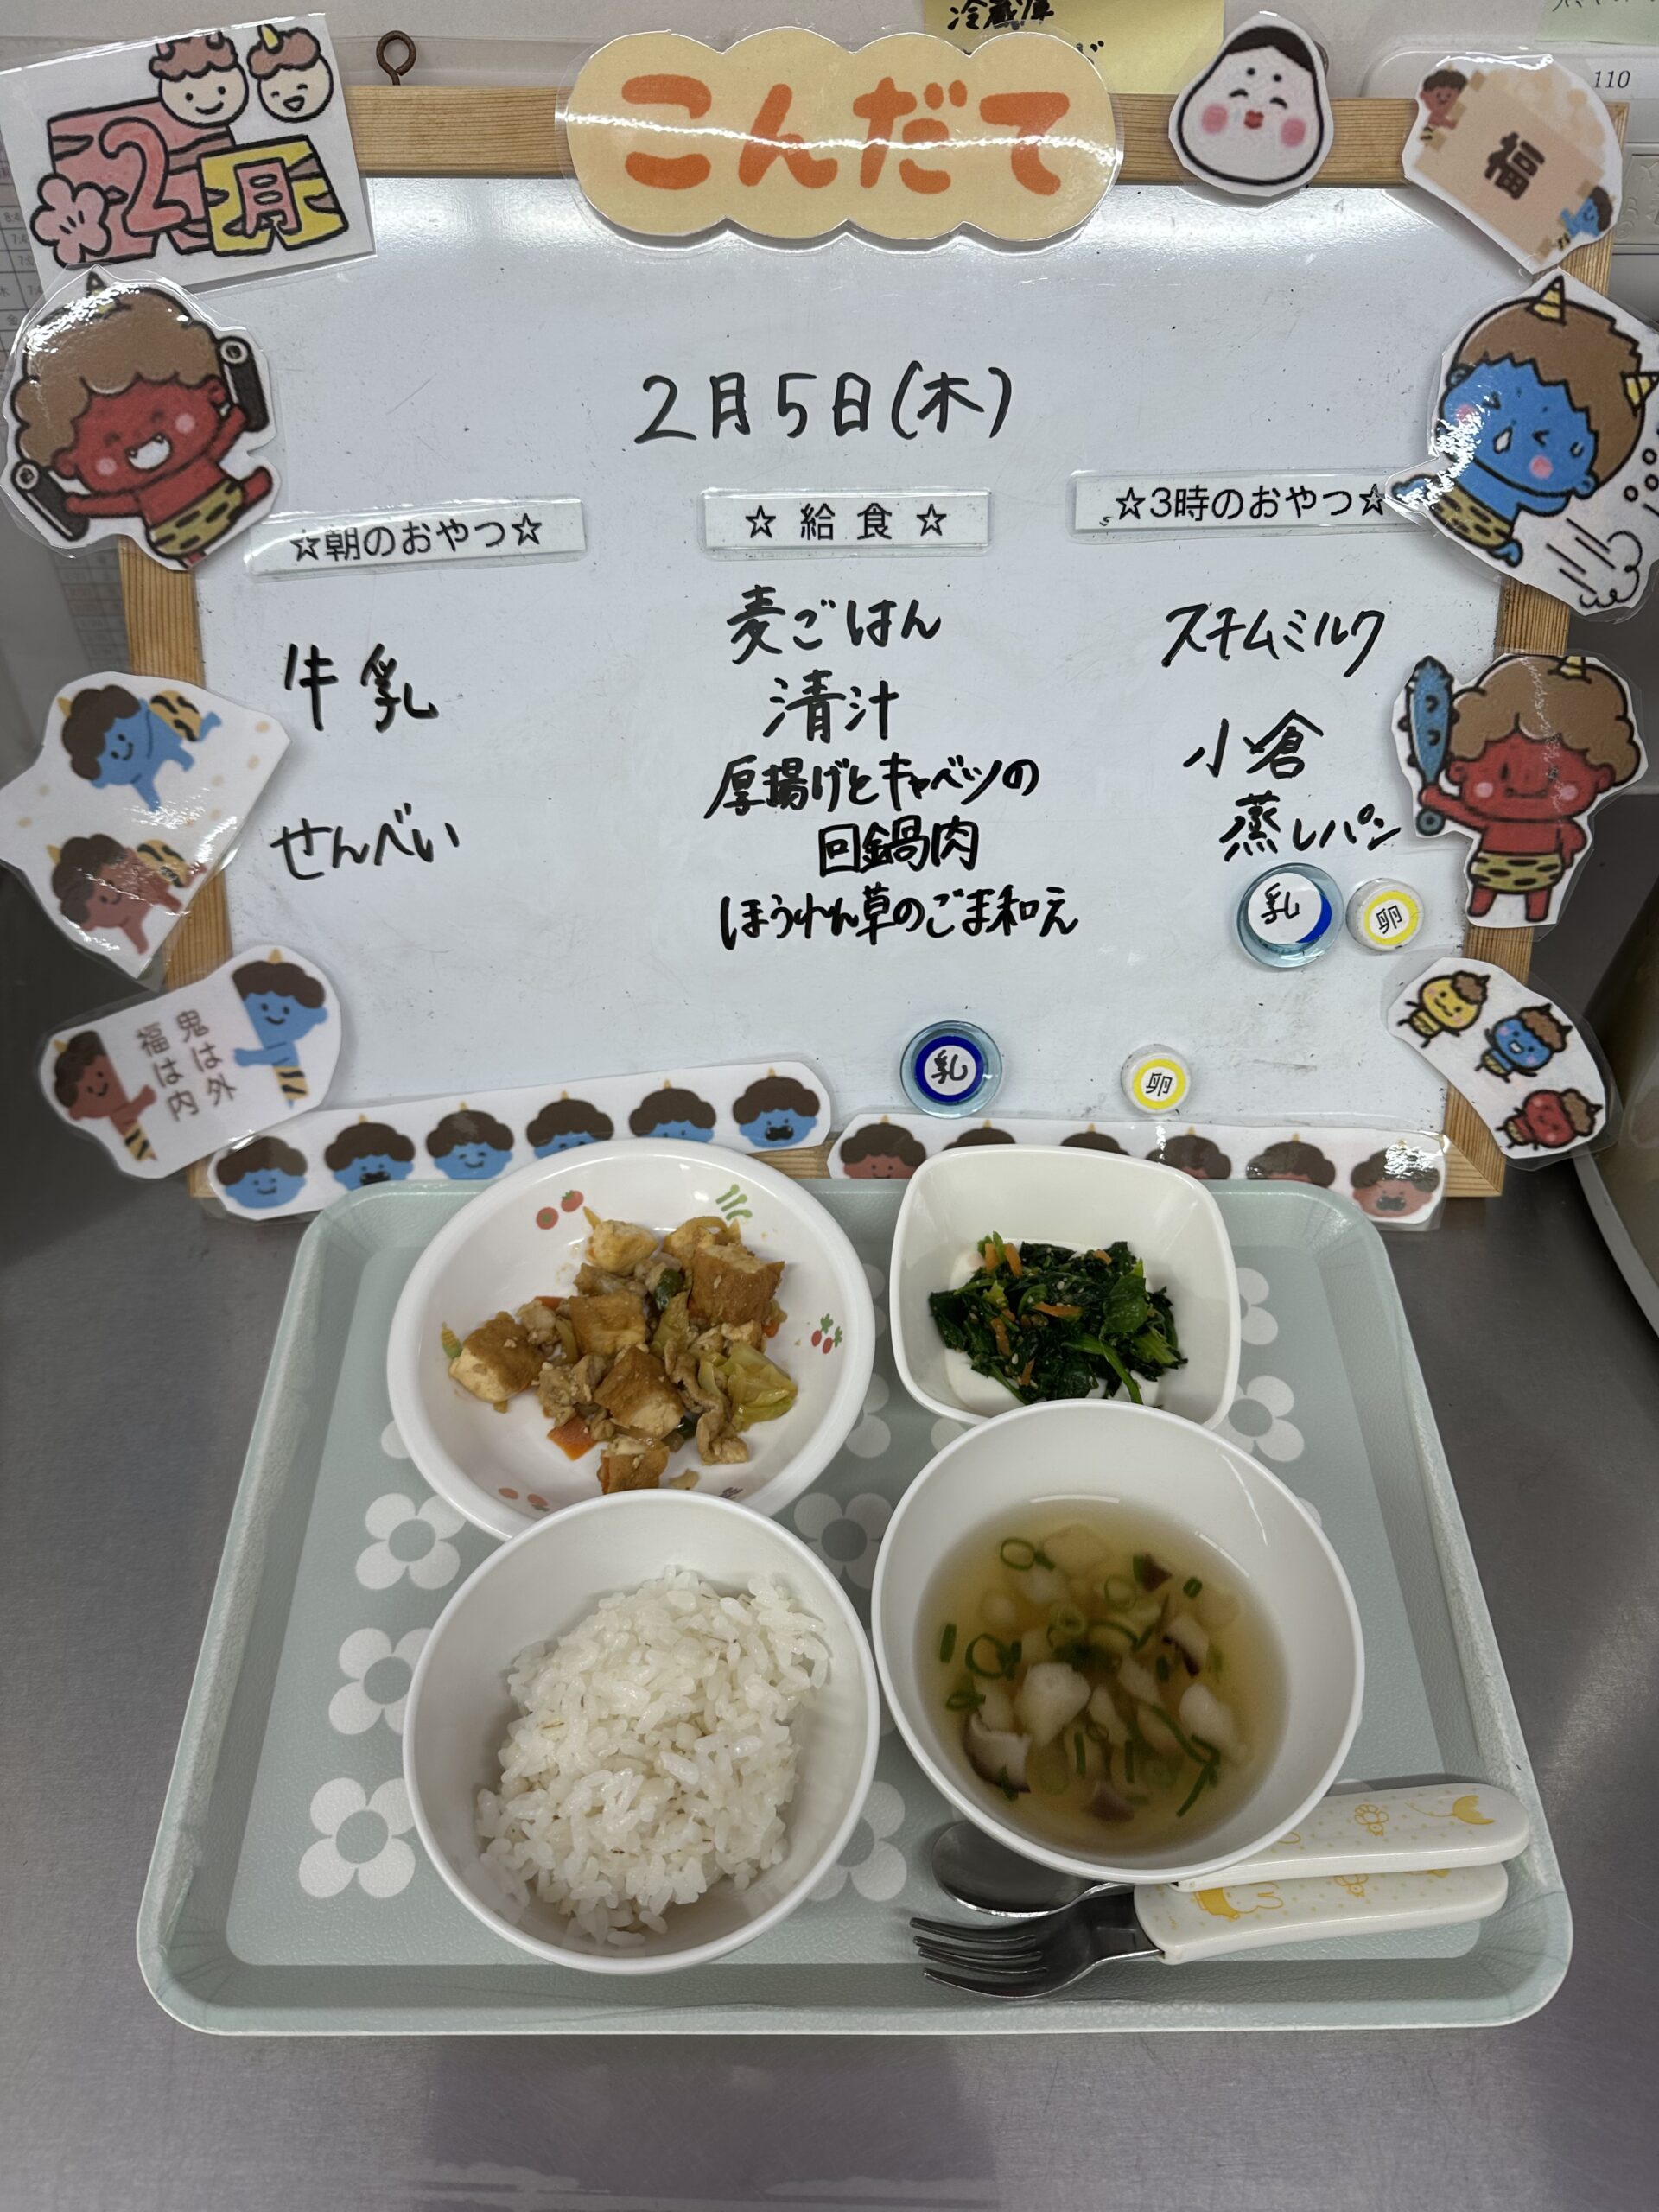 冷蔵庫
110
こんだて
2月
福
2月5日(木)
☆朝のおやつ☆
牛乳
せんべい
☆ 給 食 ☆
麦ごはん
清汁
厚揚げとキャベツの
回鍋肉
ほうれん草のごま和え
☆3時のおやつ☆
スキムミルク
小倉
蒸しパン
乳
卵
鬼は外
福は内
乳
卵